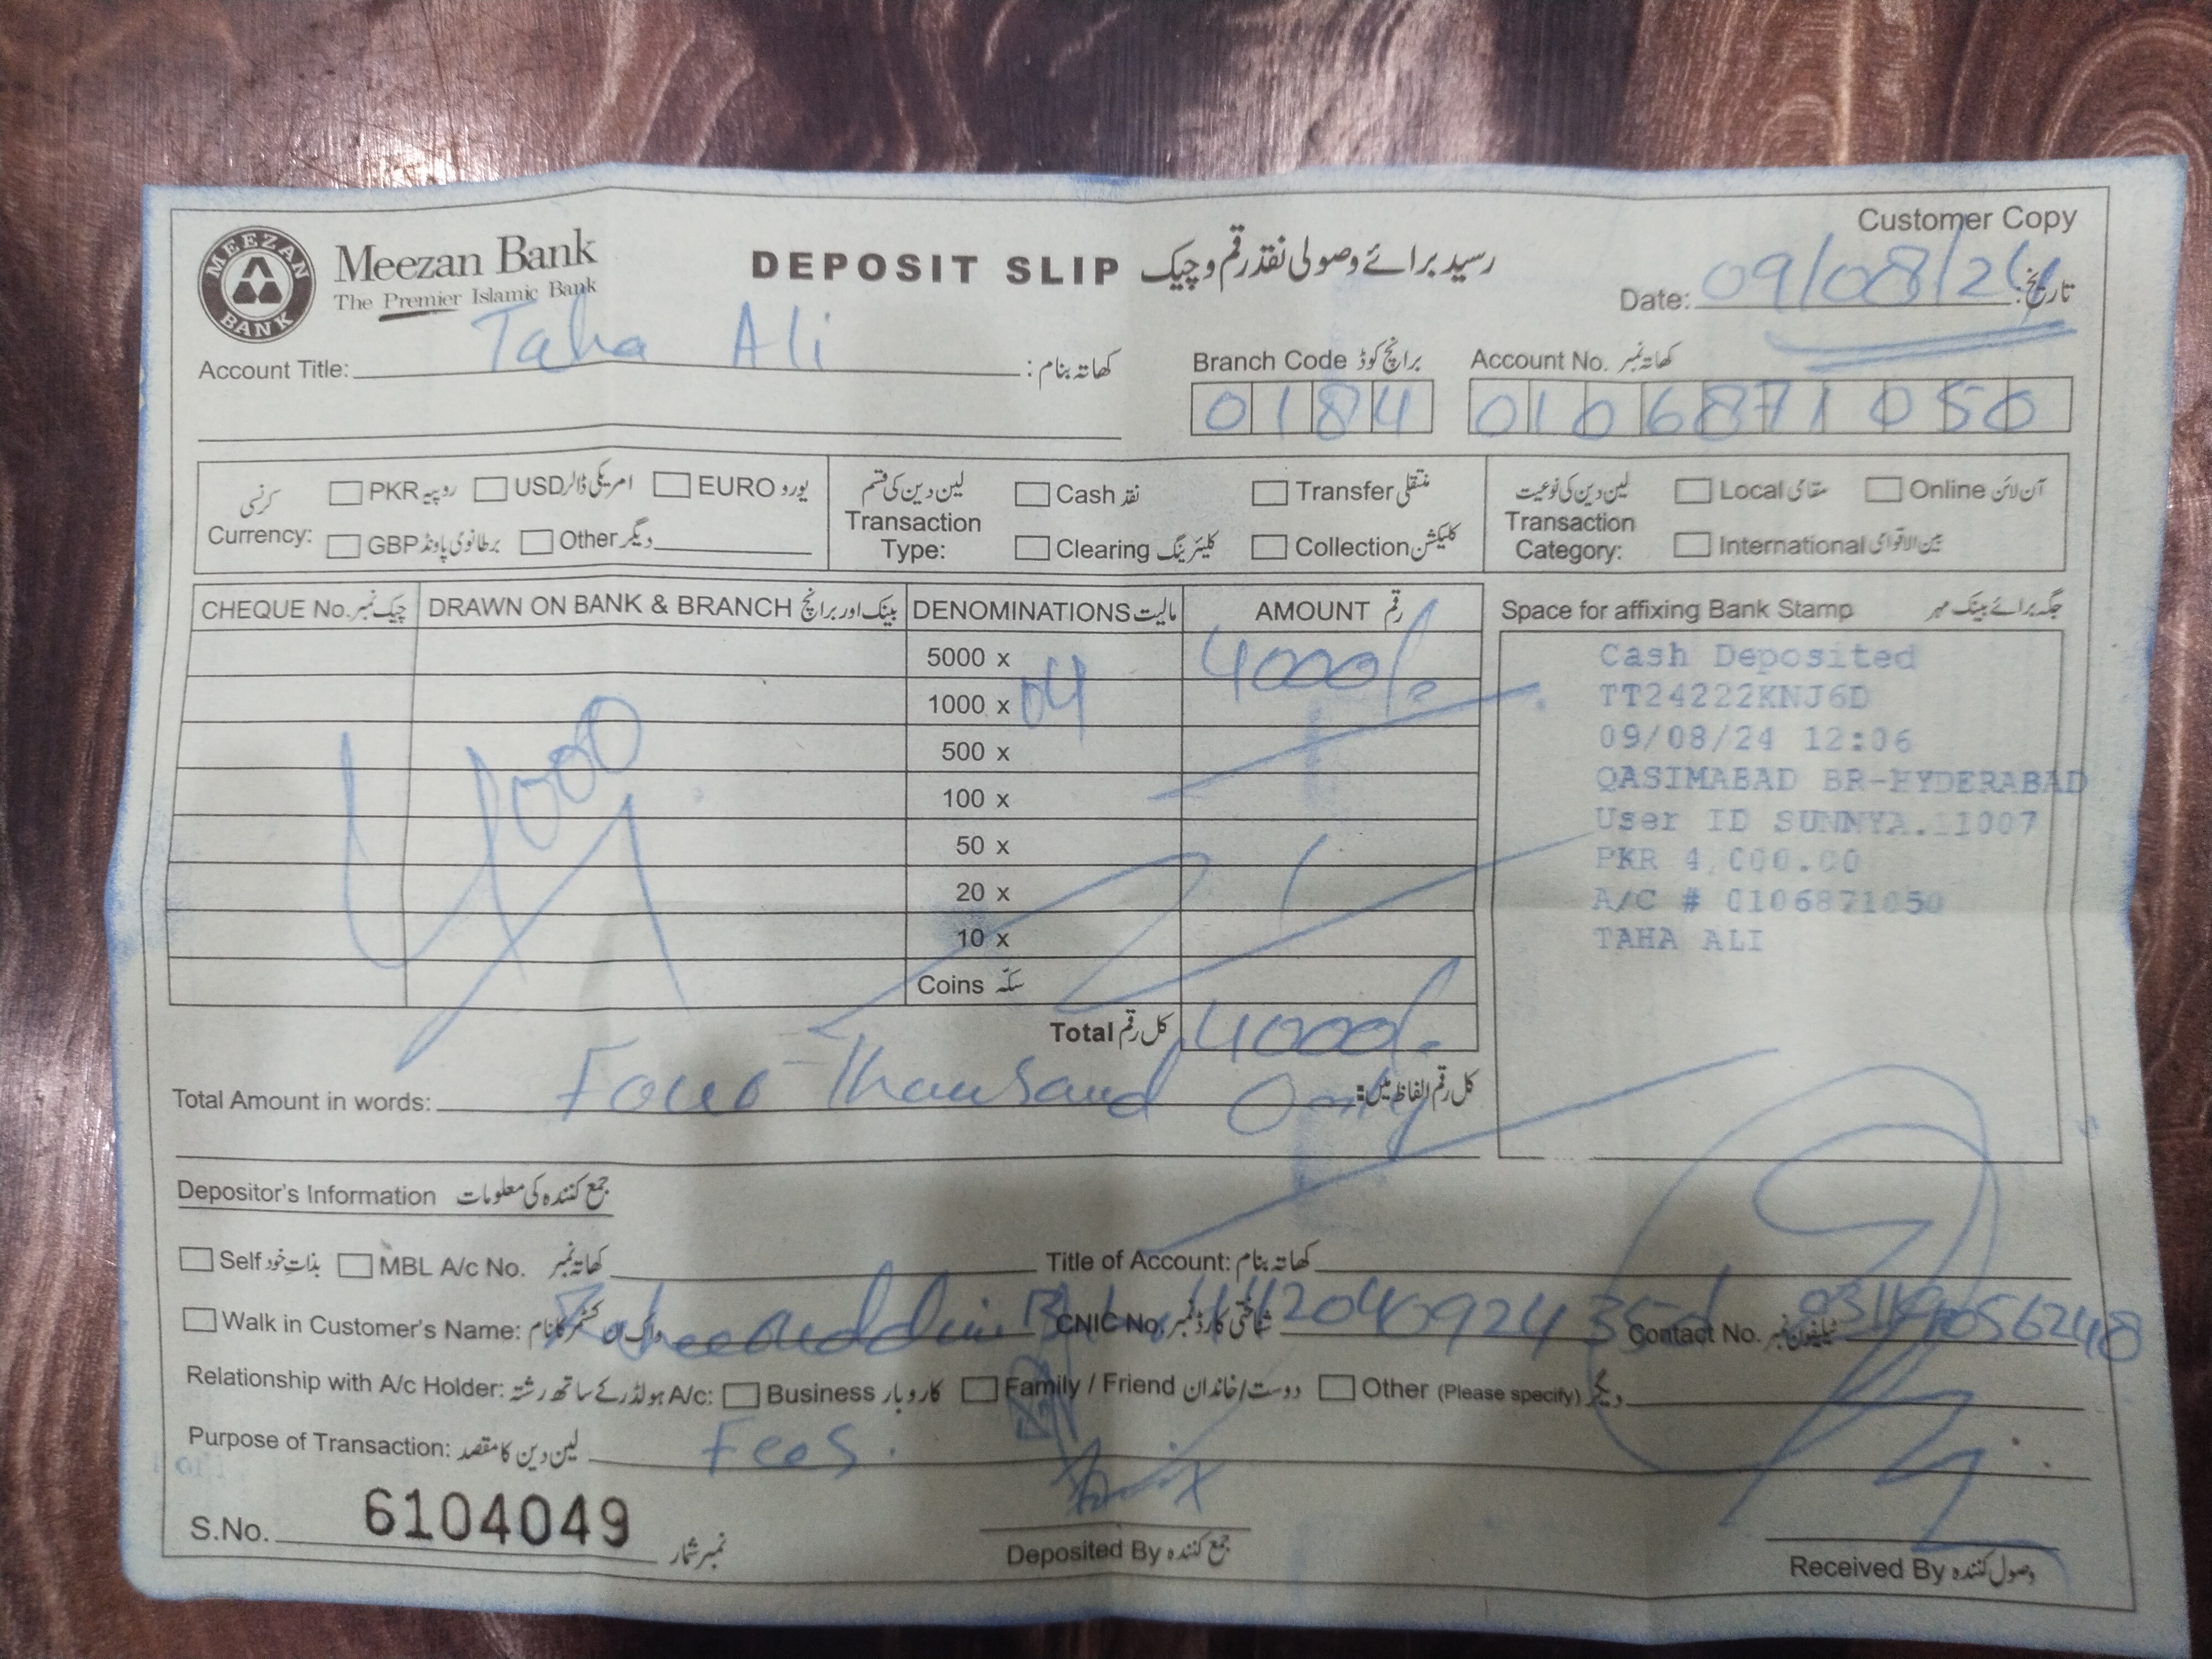 MEEZAN BANK
Meezan Bank
The Premier Islamic Bank
DEPOSIT SLIP رسید برائے وصولی نقد رقم و چیک
Customer Copy
Date: 09/08/24 تاریخ:
Account Title: Taha Ali کھاتہ بنام:
Branch Code برانچ کوڈ
0184
Account No. کھاتہ نمبر
0106871050
کرنسی
Currency:
PKR روپیہ USD امریکی ڈالر EURO یورو
GBP برطانوی پاونڈ Other دیگر
لین دین کی قسم
Transaction Type:
Cash نقد Transfer منتقلی
Clearing کلیئرینگ Collection کلیکشن
لین دین کی نوعیت
Transaction Category:
Local مقامی Online آن لائن
International بین الاقوامی
CHEQUE No. چیک نمبر DRAWN ON BANK & BRANCH بینک اور برانچ DENOMINATIONS مالیت AMOUNT رقم
5000 x
1000 x 04 4000/-
500 x
100 x
50 x
20 x
10 x
Coins سکہ
4000
Total کل رقم 4000/-
Space for affixing Bank Stamp جگہ برائے بینک مہر
Cash Deposited
TT24222KNJ6D
09/08/24 12:06
QASIMABAD BR-HYDERABAD
User ID SUNNYA.11007
PKR 4,000.00
A/C # 0106871050
TAHA ALI
Total Amount in words: Four Thousand Only کل رقم الفاظ میں:
Depositor's Information جمع کنندہ کی معلومات
Self بذات خود MBL A/c No. کھاتہ نمبر Title of Account: کھاتہ بنام:
Walk in Customer's Name: واک ان کسٹمر کا نام CNIC No. شناختی کارڈ نمبر Contact No. ٹیلیفون نمبر
Relationship with A/c Holder: A/c ہولڈر کے ساتھ رشتہ: Business کاروبار Family / Friend دوست/خاندان Other (Please specify) دیگر
Purpose of Transaction: لین دین کا مقصد Fees.
S.No. 6104049 نمبر شمار
Deposited By جمع کنندہ
Received By وصول کنندہ